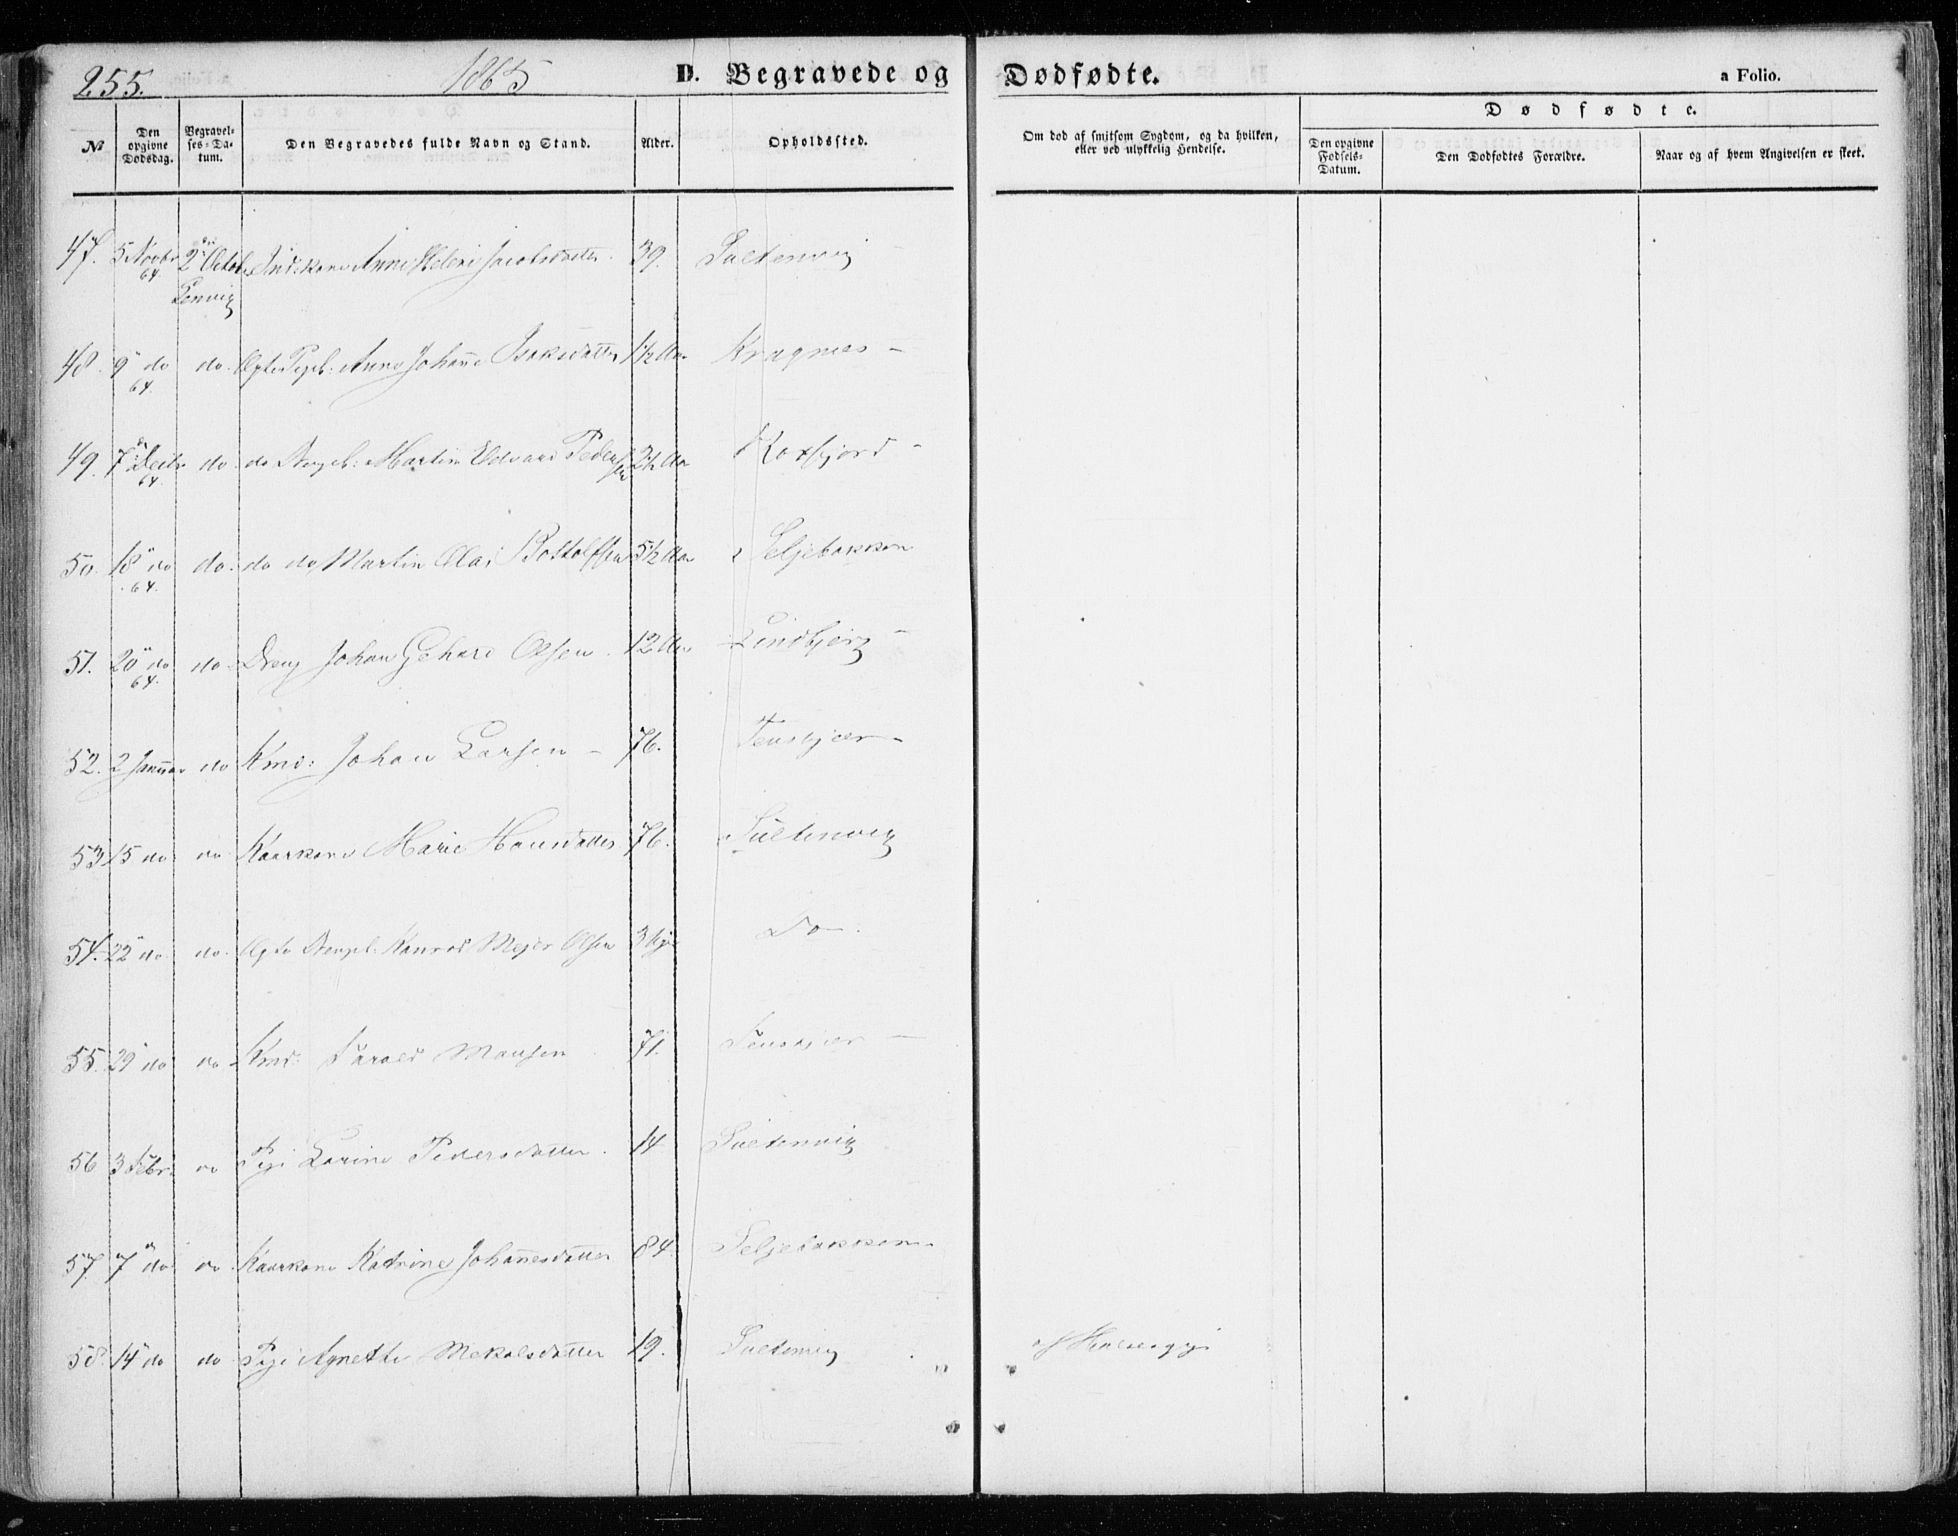 255. 1865 D. Begravede og Dødfødte. a Folio.
Dødfødte.
№ Den opgivne Dødsdag. Begravelses-Datum. Den Begravedes fulde Navn og Stand. Alder. Opholdssted. Om død af smitsom Sygdom, og da hvilken, eller ved ulykkelig Hendelse. Den opgivne Fødsels-Datum. Den Dødfødtes Forældre. Naar og af hvem Angivelsen er skeet.
47. 5 Novbr 64 2den Octob Lenvig Anne Helene Jacobsdatter 39.
48. 9 do 64 do Anne Johanne Isaksdatter 1½ Aar Kragnes
49. 7 Decbr 64 do do Martin Edvard Pedersen 2½ Aar Roxfjord
50. 18 do 64 do do do Martin Olai 5½ Aar Seljebakken
51. 20 do 64 do Dreng Johan Gehard Olsen 12 Aar Lindbjerg
52. 2 Januar do Kmd: Johan Larsen 76.
53 15 do do Kaarkone Marie Hansdatter 76.
54. 22 do do Konrad Mejer Olsen 3 Do
55. 29 do do Kmd: Monsen 71.
56 3 Febr: do Pige Karine Pedersdatter 14
57. 7 do do Kaarkone Katrine Johannesdatter 84. Seljebakken
58. 14 do do Pige Agnethe Mekalsdatter 19.